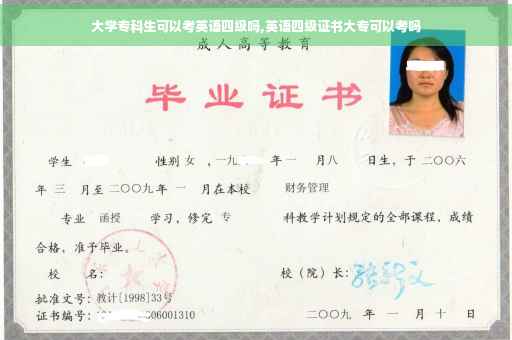 大学专科生可以考英语四级吗,英语四级证书大专可以考吗
成人高等教育
毕业证书
学生 性别 女 ，一九 年 一 月八 日生，于 二〇〇六
年 三 月至 二〇〇九 年 一 月在本校 财务管理
专业 函授 学习，修完 专 科教学计划规定的全部课程，成绩
合格，准予毕业。
校 名： 校（院）长：
批准文号：教计[1998]33号
证书编号： 06001310 二〇〇九 年 一 月 十 日